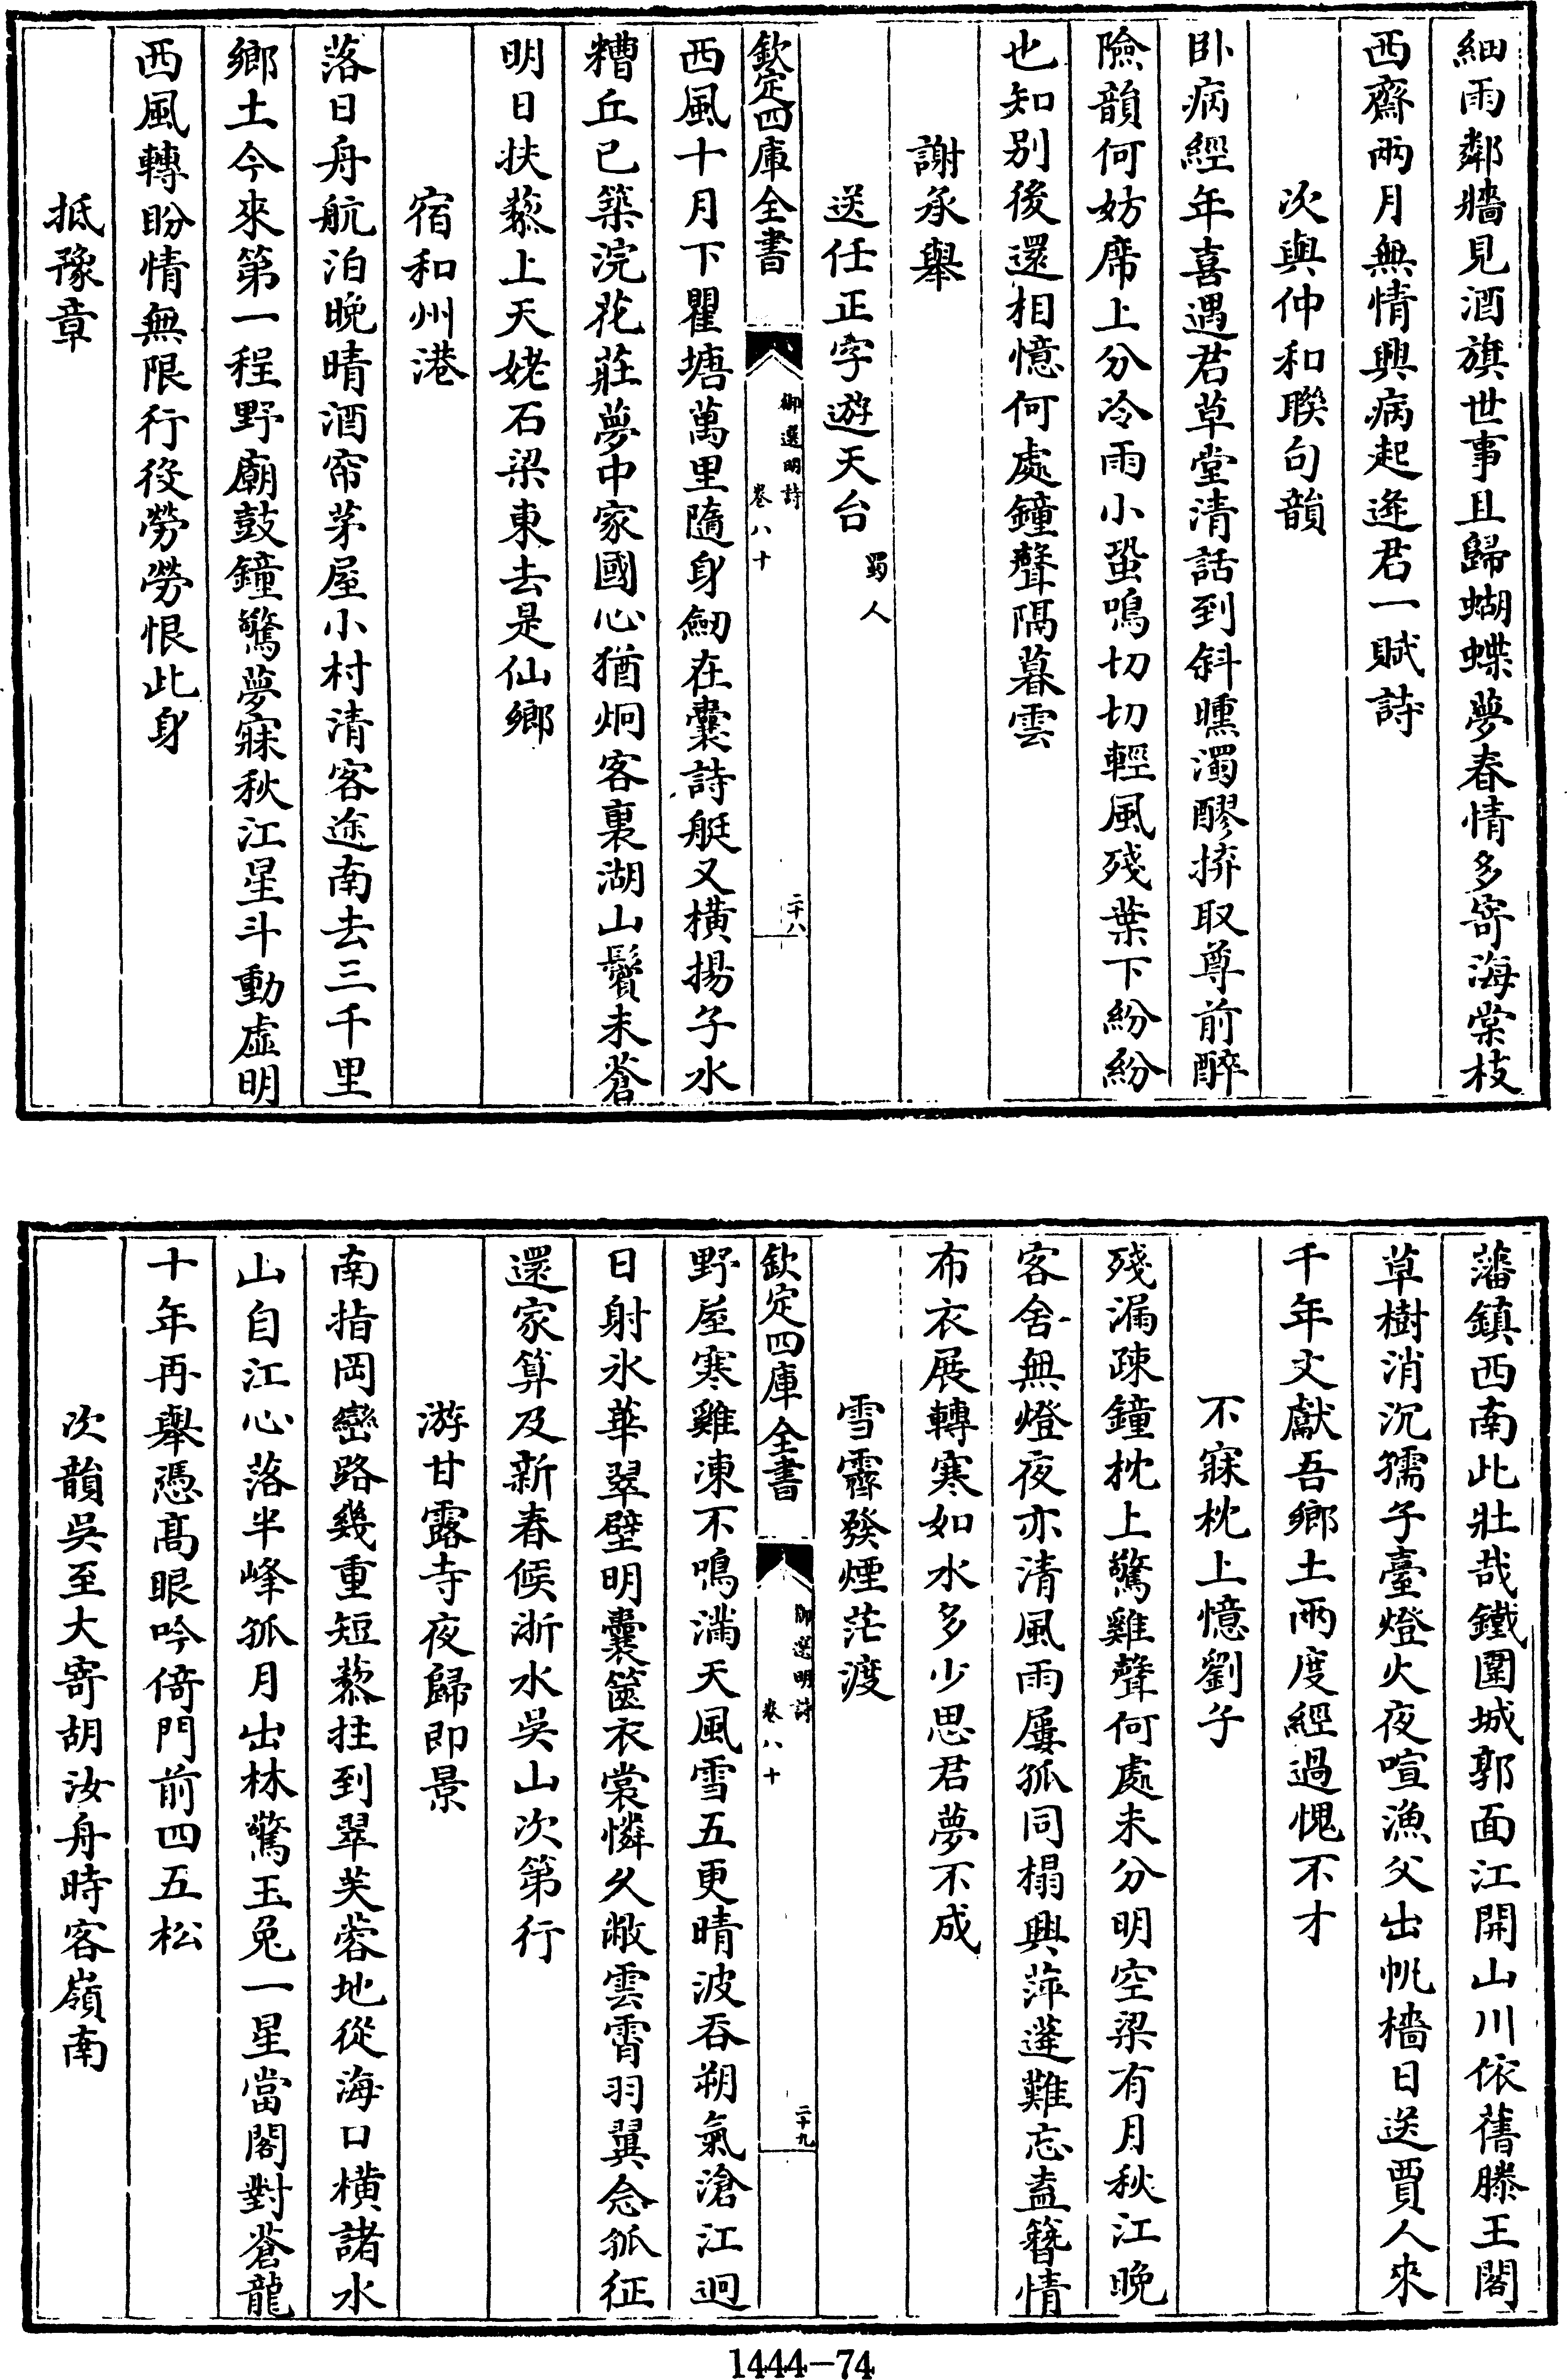 細雨鄰牆見酒旗世事且歸蝴蝶夢春情多寄海棠枝
西齋兩月無情興病起逢君一賦詩
次與仲和聯句韻
卧病經年喜遇君草堂清話到斜曛濁醪拚取尊前醉
險韻何妨席上分冷雨小蛩鳴切切輕風殘葉下紛紛
也知别後還相憶何處鐘聲隔暮雲
謝承舉
送任正字遊天台蜀人
欽定四庫全書
御選明詩
卷八十
二十八
西風十月下瞿塘萬里隨身劒在囊詩艇又橫揚子水
糟丘已築浣花莊夢中家國心猶炯客裏湖山鬢未蒼
明日扶藜上天姥石梁東去是仙鄉
宿和州港
落日舟航泊晚晴酒帘茅屋小村清客途南去三千里
鄉土今來第一程野廟鼓鐘驚夢寐秋江星斗動虚明
西風轉盼情無限行役勞勞恨此身
抵豫章
藩鎮西南此壯哉鐵圍城郭面江開山川依舊滕王閣
草樹消沉孺子臺燈火夜喧漁父出帆檣日送賈人來
千年文獻吾鄉土兩度經過愧不才
不寐枕上憶劉子
殘漏疎鐘枕上驚雞聲何處未分明空梁有月秋江晚
客舍無燈夜亦清風雨屢孤同榻興萍蓬難忘盍簪情
布衣展轉寒如水多少思君夢不成
雪霽發煙茫渡
欽定四庫全書
御選明詩
卷八十
二十九
野屋寒雞凍不鳴滿天風雪五更晴波吞朔氣滄江迥
日射氷華翠壁明囊篋衣裳憐久敝雲霄羽翼念孤征
還家算及新春候浙水吳山次第行
游甘露寺夜歸即景
南指岡巒路幾重短藜拄到翠芙蓉地從海口橫諸水
山自江心落半峰孤月出林驚玉兔一星當閣對蒼龍
十年再舉憑髙眼吟倚門前四五松
次韻吳至大寄胡汝舟時客嶺南
1444-74